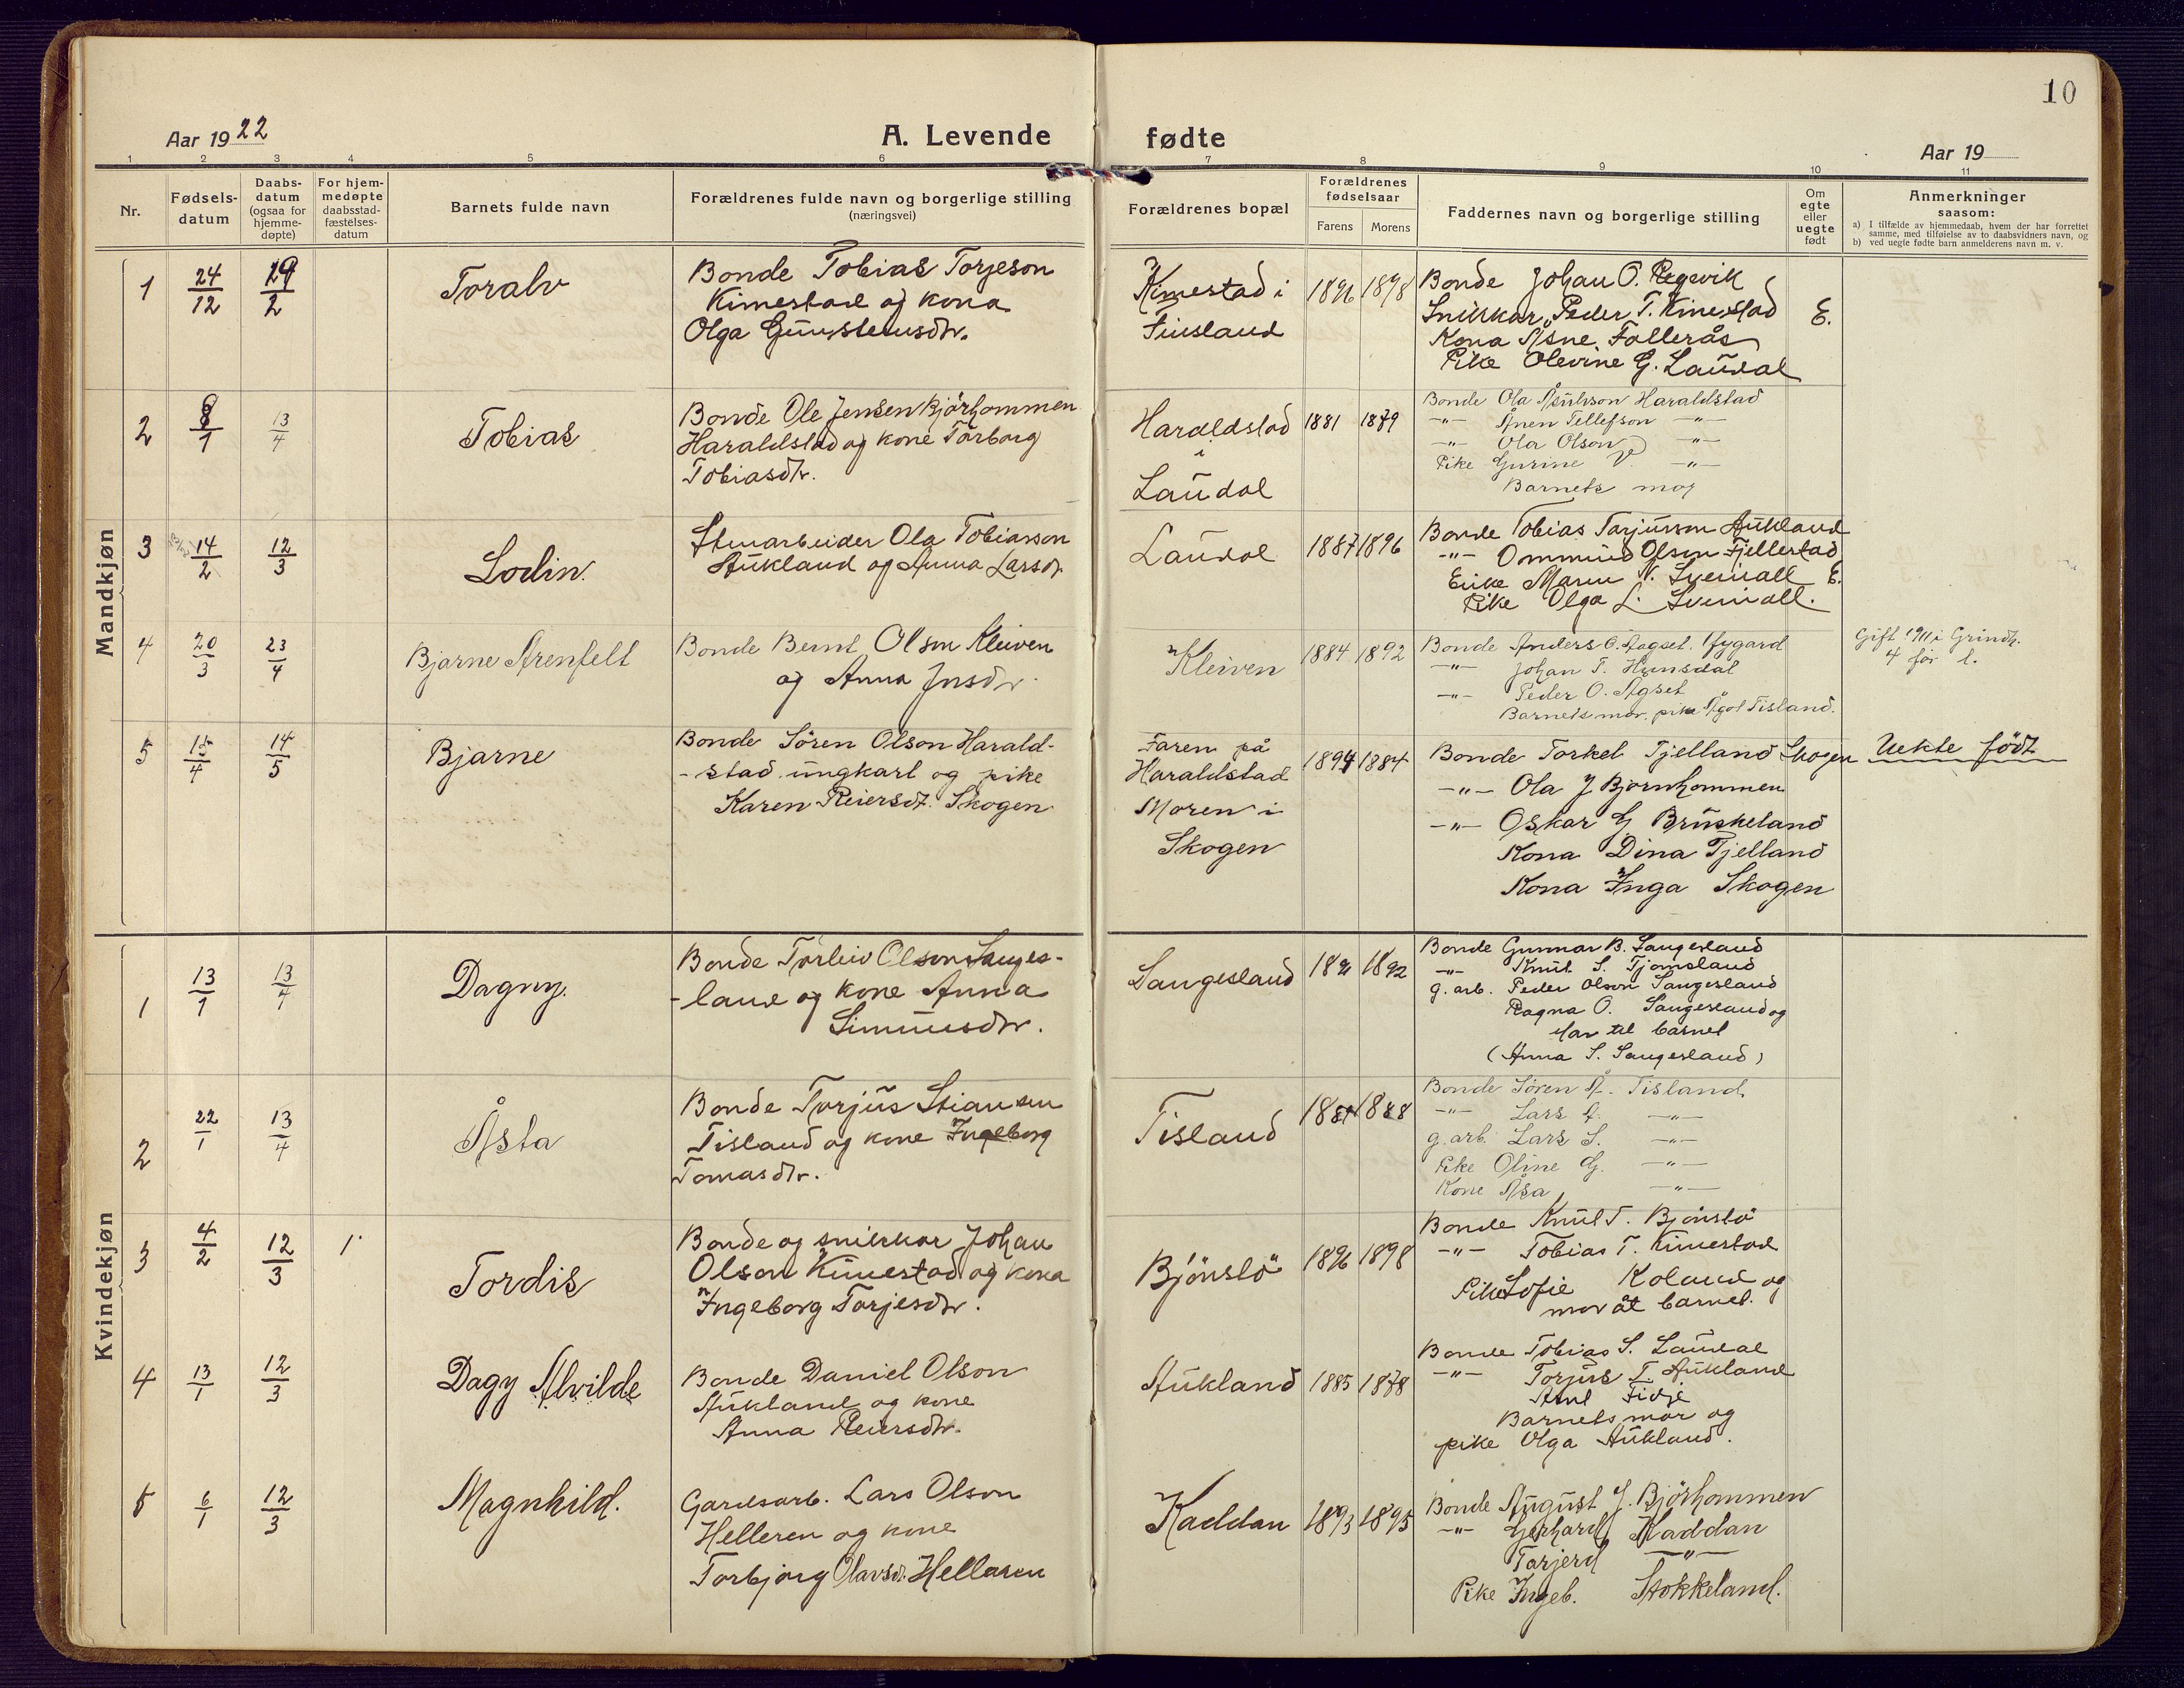 10
Aar 1922
A. Levende
fødte
Aar 19
1 2 3 4 5 6 7 8 9 10 11
Nr.
Fødsels-
datum
Daabs-
datum
(ogsaa for
hjemme-
døpte)
For hjem-
medøpte
daabsstad-
fæstelses-
datum
Barnets fulde navn
Forældrenes fulde navn og borgerlige stilling
(næringsvei)
Forældrenes bopæl
Forældrenes
fødselsaar
Farens Morens
Faddernes navn og borgerlige stilling
Om
egte
eller
uegte
født
Anmerkninger
saasom:
a) I tilfælde av hjemmedaab, hvem der har forrettet
samme, med tilføielse av to daabsvidners navn, og
b) ved uegte fødte barn anmelderens navn m. v.
Mandkjøn
1
24/12
19/2
Toralv
Bonde Tobias Torjeson
Kimestad og kona
Olga Gunsteinsdtr.
Kimestad i
Finsland
1896 1898
Bonde Johan O. Regevik
Snikkar Peder T. Kimestad
Kona Åsne Follerås
Pike Olevine G. Laudal
E.
2
8/1
13/4
Tobias
Bonde Ole Jensen Bjorhommen
Haraldstad og kone Torborg
Tobiasdtr.
Haraldstad
i
Laudal
1881 1879
Bonde Ola Åsulvson Haraldstad
-"- Ånen Tellefson -"-
-"- Ola Olson -"-
Pike Gurine -"-
Barnets mor
3
14/2
12/3
Lodin.
Stenarbeider Ola Tobiasson
Aukland og Anna Larsdr.
Laudal
1887 1896
Bonde Tobias Tarjusson Aukland
-"- Ommund Olson Fjellestad
Enke Maren N. Sveinall E.
Pike Olga L. Sveinall.
4
20/3
23/4
Bjarne Arenfelt
Bonde Bernt Olson Kleiven
og Anna Jnsdr.
Kleiven
1884 1892
Bonde Anders O. Aagset. Nygard
-"- Johan T. Hunsdal
-"- Peder O. Agset
Barnets mor, pike Ågot Tisland.
Gift 1911 i Grindh.
4 før l.
5
15/4
14/5
Bjarne
Bonde Sören Olson Harald-
-stad ungkarl og pike
Karen Reiersdt. Skogen
Faren på
Haraldstad
Moren i
Skogen
1894 1884
Bonde Torkel Tjelland Skogen
-"- Ola J Bjornhommen
-"- Oskar G Bruskeland
Kona Dina Tjelland
Kona Inga Skogen
Uekte födt
Kvindekjøn
1
13/1
13/4
Dagny.
Bonde Torleiv Olson Sanges-
-land og kone Anna
Simunsdtr.
Sangesland
1891 1892
Bonde Gunnar B. Sangesland
-"- Knut S. Tjomsland
g. arb. Peder Olson Sangesland
Ragna O. Sangesland og
Mor til barnet
(Anna S. Sangesland)
2
22/1
13/4
Åsta
Bonde Torjus Stiansen
Tisland og kone Ingeborg
Tomasdtr.
Tisland
1888
Bonde Sören A. Tisland
-"- Lars -"-
g. arb. Lars S. -"-
Pike Oline G. -"-
Kone Åsa -"-
3
4/2
12/3
1
Tordis
Bonde og snikkar Johan
Olson Kimestad og kona
Ingeborg Torjesdtr.
Bjönslö
1896 1898
Bonde Knut T. Bjönslö
-"- Tobias T. Kimestad
Pike Sofie Koland og
mor åt barnet.
4
13/1
12/3
Dagy Alvilde
Bonde Daniel Olson
Aukland og kone
Anna Reiersdtr.
Aukland
1885 1878
Bonde Tobias S. Laudal
-"- Torjus T. Aukland
Fidje
Barnets mor og
pike Olga Aukland.
5
6/1
12/3
Magnhild.
Gardsarb. Lars Olson
Helleren og kone
Torbjörg Olavsd. Hellaren
Kaddan
1893 1895
Bonde August J. Bjorhommen
-"- Gerhard Kaddan
Tarjerd -"-
Pike Ingeb. Stokkeland.